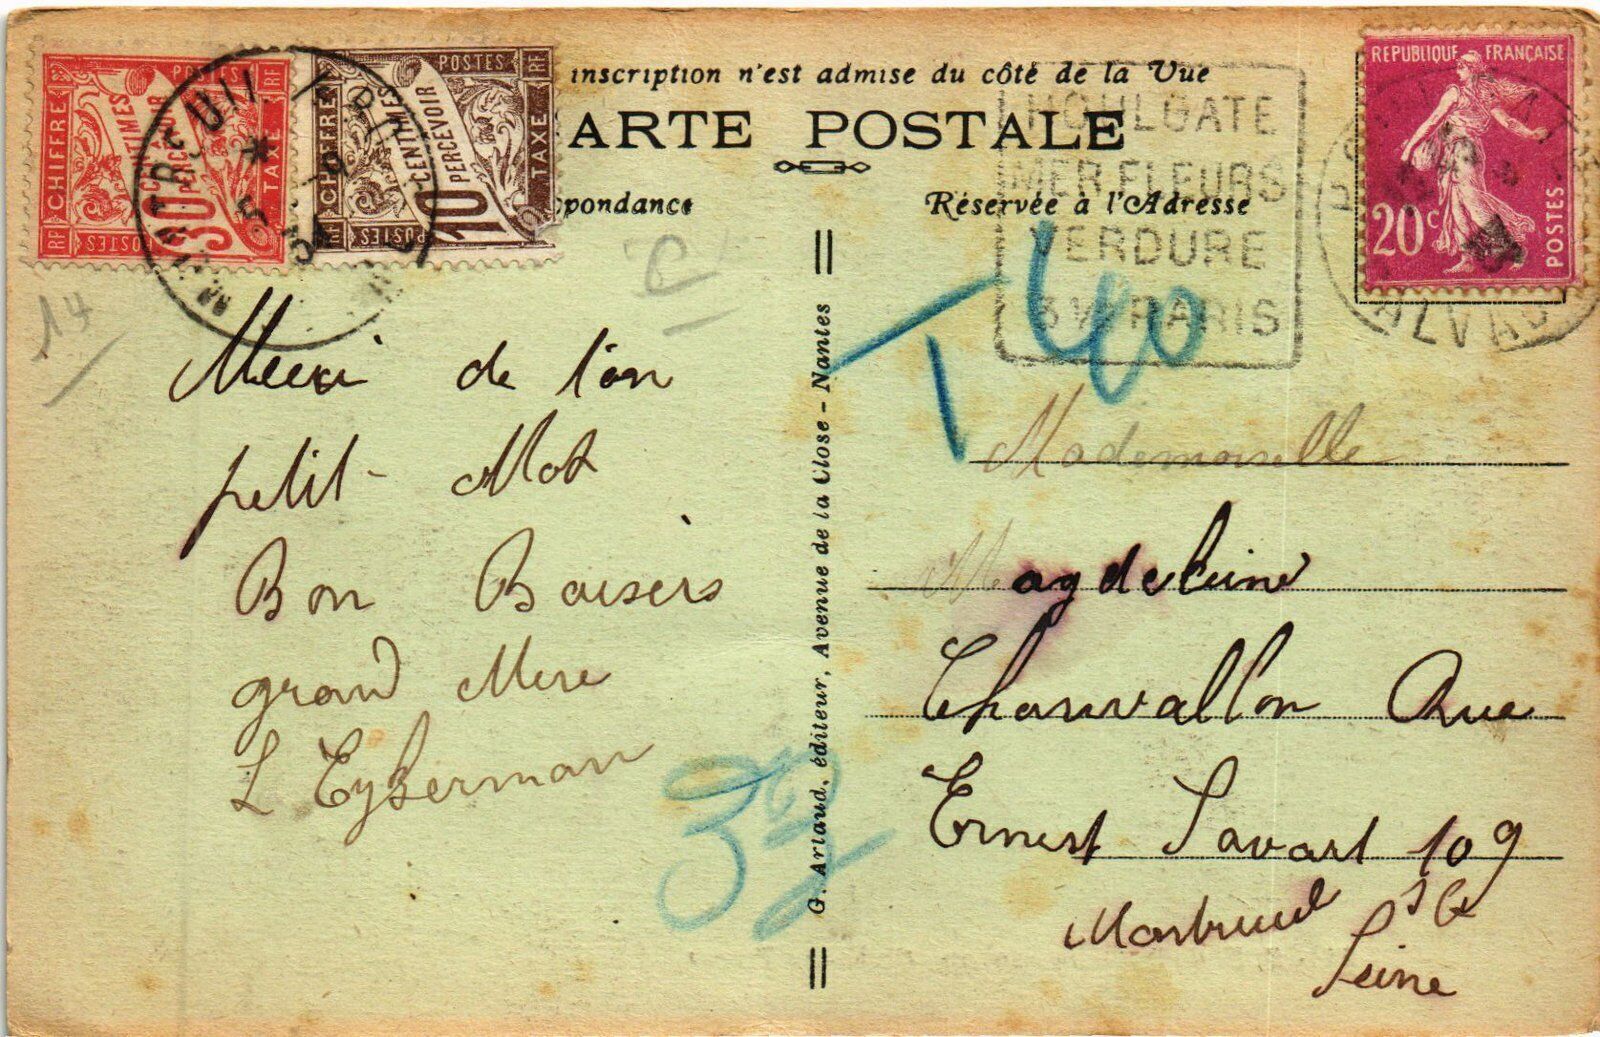 inscription n'est admise du côté de la Vue
ARTE POSTALE
pondance
Réservée à l'Adresse
CHIFFRE
POSTES
RF
TAXE
30 CENTIMES À PERCEVOIR
POSTES
RF
CHIFFRE
POSTES
RF
TAXE
10 CENTIMES À PERCEVOIR
POSTES
REPUBLIQUE FRANÇAISE
20c
POSTES
HOULGATE
MER FLEURS
VERDURE
3 ½ PARIS
HOULGATE
CALVADOS
T 40
14
Merci de ton
petit Mot
Bon Baisers
grand Mere
L Eyserman
32
G. Artaud, éditeur, Avenue de la Close - Nantes
Mademoiselle
Magdeleine
Chanvallon Rue
Ernest Savart 109
Montreuil s B
Seine